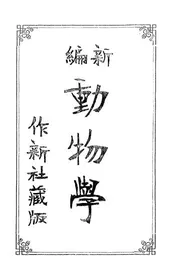 新編
動物學
作新社藏版